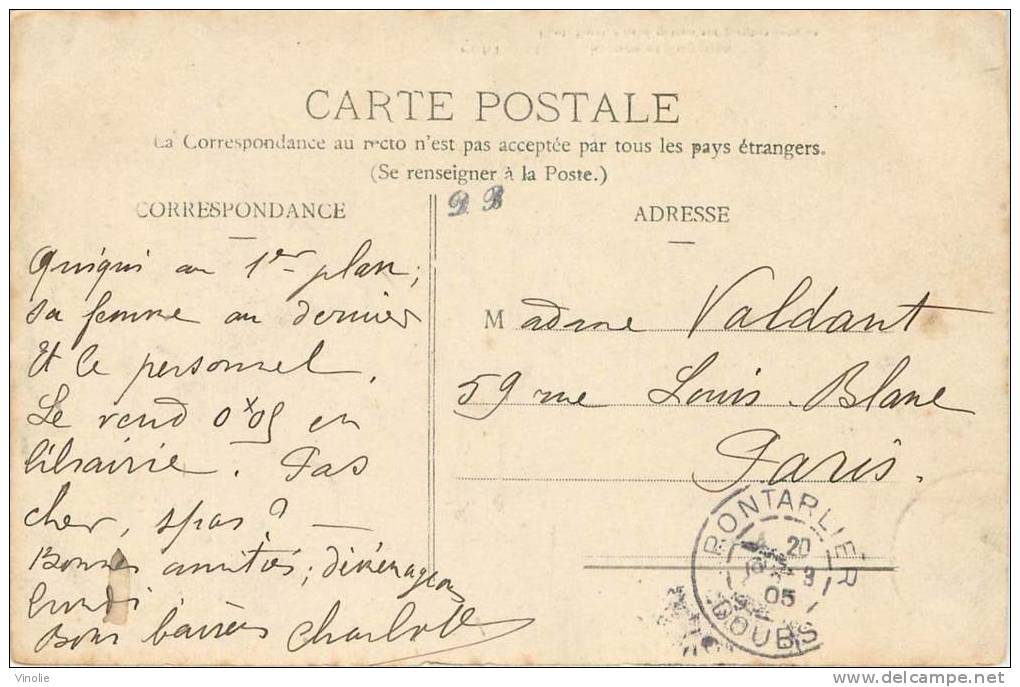 CARTE POSTALE
La Correspondance au recto n'est pas acceptée par tous les pays étrangers.
(Se renseigner à la Poste.)
CORRESPONDANCE
Quiqui au 1er plan,
sa femme au dernier
Et le personnel.
Se vend 0x05 en
librairie. Pas
cher, spas? —
Bonnes amitiés; déménageons
lundi
Bons baisers Charlotte
B B
ADRESSE
Madame Valdant
59 rue Louis Blanc
Paris.
PONTARLIER
20
05
DOUBS
Vinolie